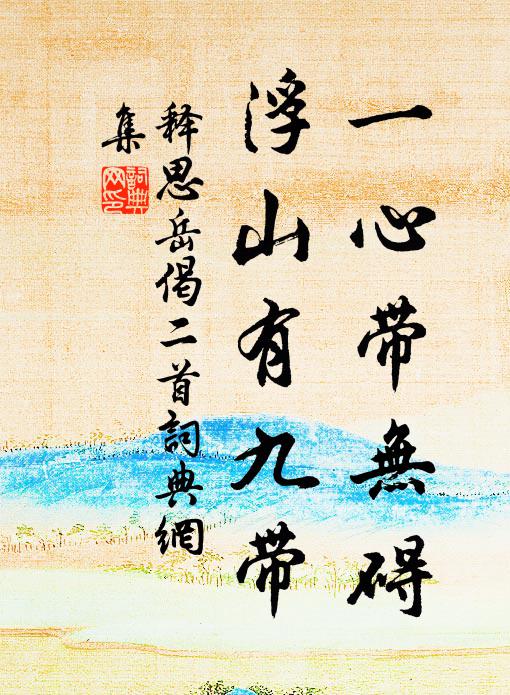 一心带無碍
浮山有九带
释思岳偈二首詞典網
集
詞典
网印